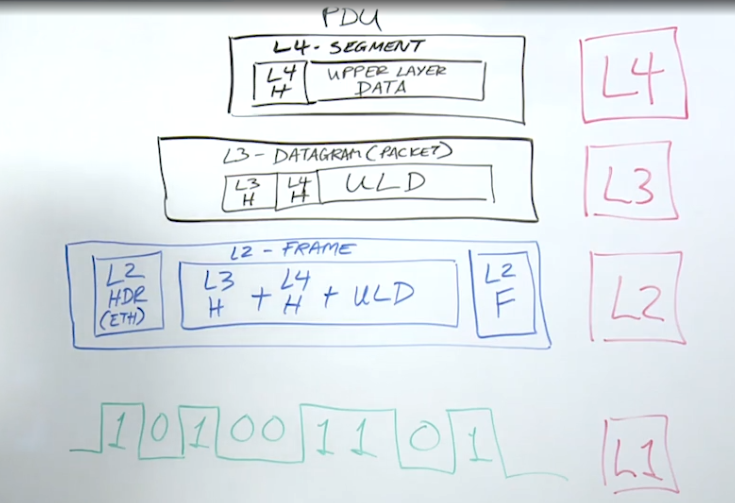 PDU
L4 - SEGMENT
L4
H
UPPER LAYER
DATA
L4
L3 - DATAGRAM (PACKET)
L3
H
L4
H
ULD
L3
L2 - FRAME
L2
HDR
(ETH)
L3
H
+
L4
H
+ ULD
L2
F
L2
1 0 1 0 0 1 1 0 1
L1